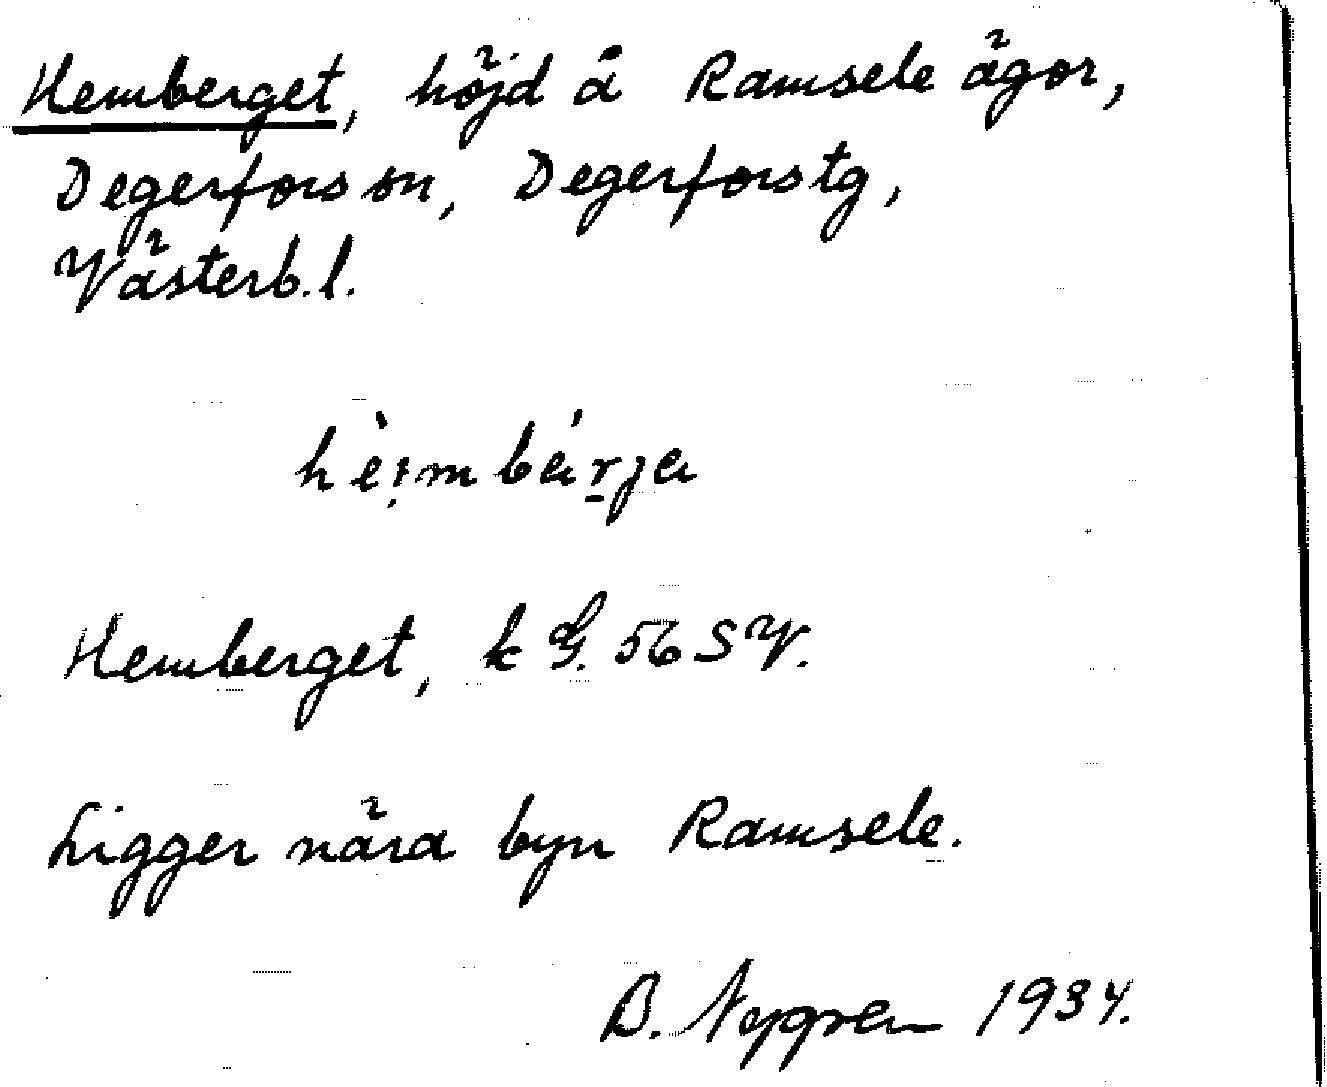 Hemberget, höjd å Ramsele ägor,
Degerfors sn, Degerfors tg,
Västerb.l.
hèi̯mbár̠ja
Hemberget, k G. 56 SV.
Ligger nära byn Ramsele.
B. Nygren 1934.